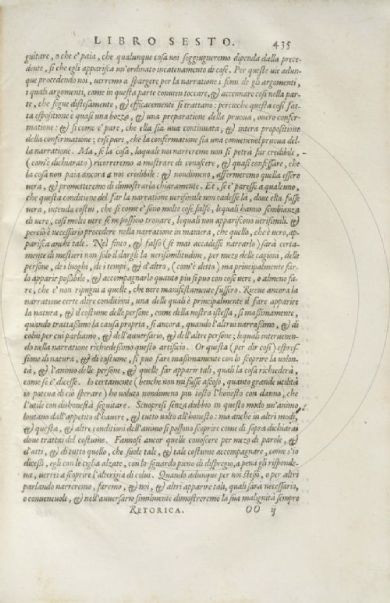 LIBRO SESTO. 435
guitare, o che e' paia, che qualunque cosa noi soggiugneremo dipenda dalla prece-
dente, sì che egli apparisca un'ordinato incatenamento di cose. Per queste vie adun-
que procedendo noi, verremo a spargere per la narratione i semi de gli argomenti,
i quali argomenti, come in questa parte convien toccare, & accennare così nella par-
te, che segue distesamente, & efficacemente si trattano: percioche questa così fat-
ta espositione è quasi una bozza, & una preparatione della pruova, overo confer-
matione: & sì come e' pare, che ella sia una continuata, & intera propositione
della confermatione; così pare, che la confermatione sia una convenevol pruova del
la narratione. Ma, se la cosa, laquale noi narreremo non si potrà far credibile,
(com'è dichiarato) ricorreremo a mostrare di conoscere, & quasi confessare, che
la cosa non paia ancora a noi credibile: & nondimeno, affermeremo quella essere
vera, & prometteremo di dimostrarlo chiaramente. Et, se e' paresse a qualcuno,
che questa conditione del far la narratione verisimile non cadesse la, dove ella fusse
vera, intenda costui, che sì come e' sono molte cose false, lequali hanno simiglianza
di vero, così molte vere se ne possino trovare, lequali non apparischino verisimili, &
perciò è necessario procedere nella narratione in maniera, che quello, che è vero, ap-
parisca anche tale. Nel finto, & falso (se mai accadesse narrarlo) sarà certa-
mente di mestieri non solo il dargli la verisimilitudine, per mezo delle cagioni, delle
persone, de i luoghi, de i tempi, & d'altro, (com'è detto) ma principalmente far-
lo apparir possibile, & accompagnarlo quanto più si può con cose vere, o almeno fa-
re, che e' non ripugni a quelle, che vere manifestamente fussero. Riceve ancora la
narratione certe altre conditioni, una delle quali è principalmente il fare apparire
la natura, & il costume delle persone, come della nostra istessa, sì massimamente,
quando trattassimo la causa propria, sì ancora, quando l'altrui narrassimo, & di
colui per cui parliamo, & dell'avversario, & dell'altre persone; lequali intervenen-
do nella narratione richiedessino questo artificio. Or questa (per dir così) espres-
sione di natura, & di costume, si può fare massimamente con lo scoprire la volun-
tà, & l'animo delle persone, & quelle far apparir tali, quali la cosa richiederà,
come se e' dicesse. Io certamente (benche non mi fusse ascoso, quanto grande utilità
io poteva di ciò sperare) ho voluto nondimeno più tosto l'honesto con danno, che
l'utile con dishonestà seguitare. Scuopresi senza dubbio in questo modo un'animo
lontano dall'appetito d'havere, & tutto volto all'honesto: ma anche in altri modi,
& questa, & altre conditioni dell'animo si possono scoprire come di sopra dichiarai
dove trattai del costume. Fannosi ancor quelle conoscere per mezo di parole, &
d'atti, & di tutto quello, che suole tali, & tali costume accompagnare, come s'io
dicessi, egli con le ciglia alzate, con lo sguardo pieno di dispregio, a pena gli rispondeva,
verrei a scoprire l'alterigia di colui. Quando adunque per noi stessi, o per altri
parlando narreremo, faremo, & noi, & altri apparire tali, quali sarà necessario,
o convenevole, & nell'avversario similmente dimostreremo la sua malignità sempre
RETORICA. OO ij